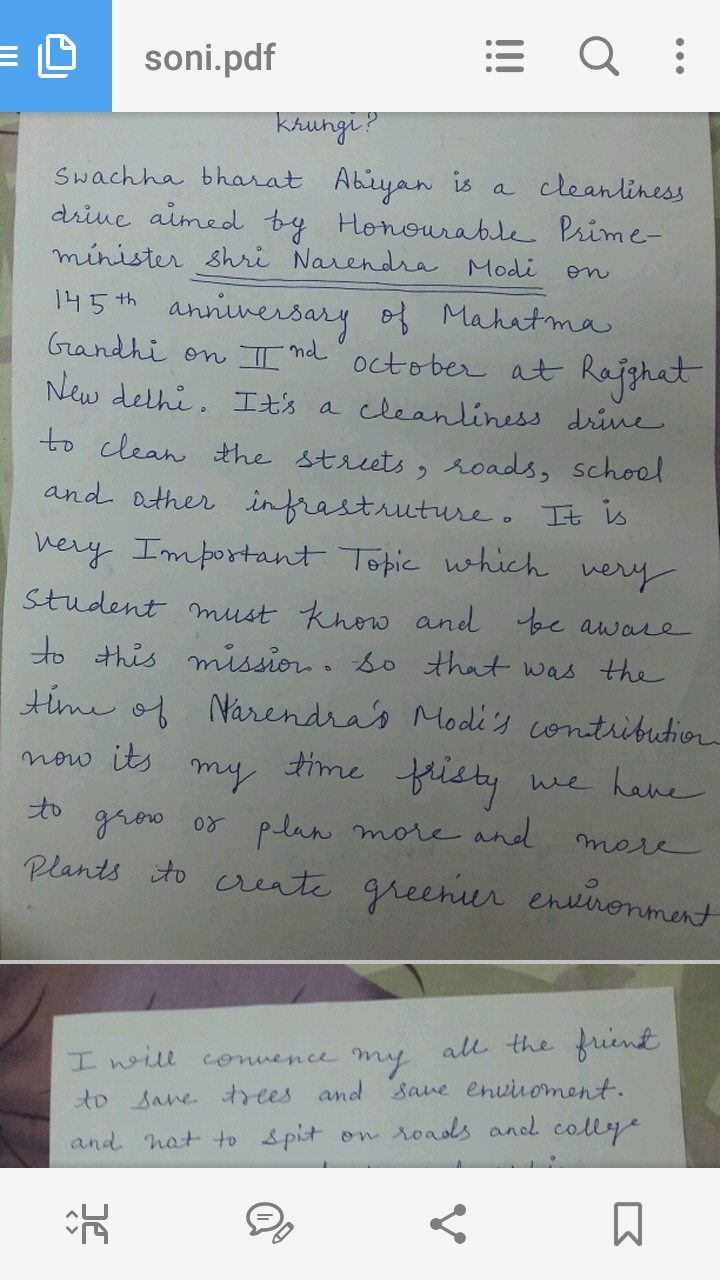 soni.pdf
krungi?
Swachha bharat Abiyan is a cleanliness
drive aimed by Honourable Prime-
minister shri Narendra Modi on
145th anniversary of Mahatma
Gandhi on IInd october at Rajghat
New delhi. It's a cleanliness drive
to clean the streets, roads, school
and other infrastruture. It is
very Important Topic which very
Student must know and be aware
to this mission. so that was the
time of Narendra's Modi's contribution
now its my time fristy we have
to grow or plan more and more
Plants to create greenier environment
I will convence my all the friend
to save trees and save enviroment.
and not to spit on roads and collge